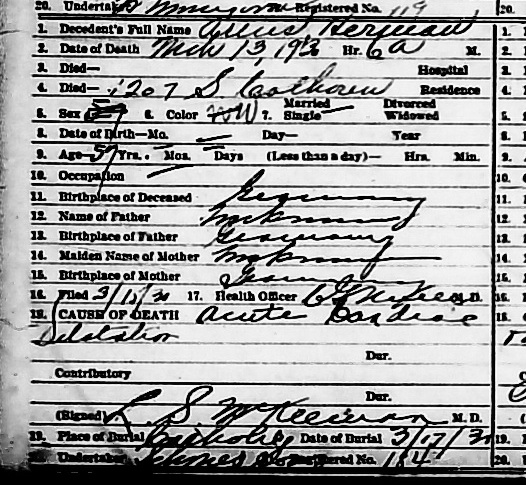 20. Undertaker Registered No. 119
1. Decedent's Full Name Herman
2. Date of Death Mch 13, 1930 Hr. 6 A M.
3. Died— Hospital
4. Died— 1207 S Calhoun Residence
5. Sex 6. Color W 7. Married Single Divorced Widowed
8. Date of Birth—Mo. Day— Year
9. Age— 57 Yrs. Mos. Days (Less than a day)— Hrs. Min.
10. Occupation
11. Birthplace of Deceased Germany
12. Name of Father Unknown
13. Birthplace of Father Germany
14. Maiden Name of Mother Unknown
15. Birthplace of Mother Germany
16. Filed 3/ /30 17. Health Officer M. D.
18. CAUSE OF DEATH Acute Cardiac
Dilatation
Dur.
Contributory
Dur.
(Signed) L S McKeeman M. D.
19. Place of Burial Catholic Date of Burial 3/17/30
20. Undertaker Sons Registered No. 114